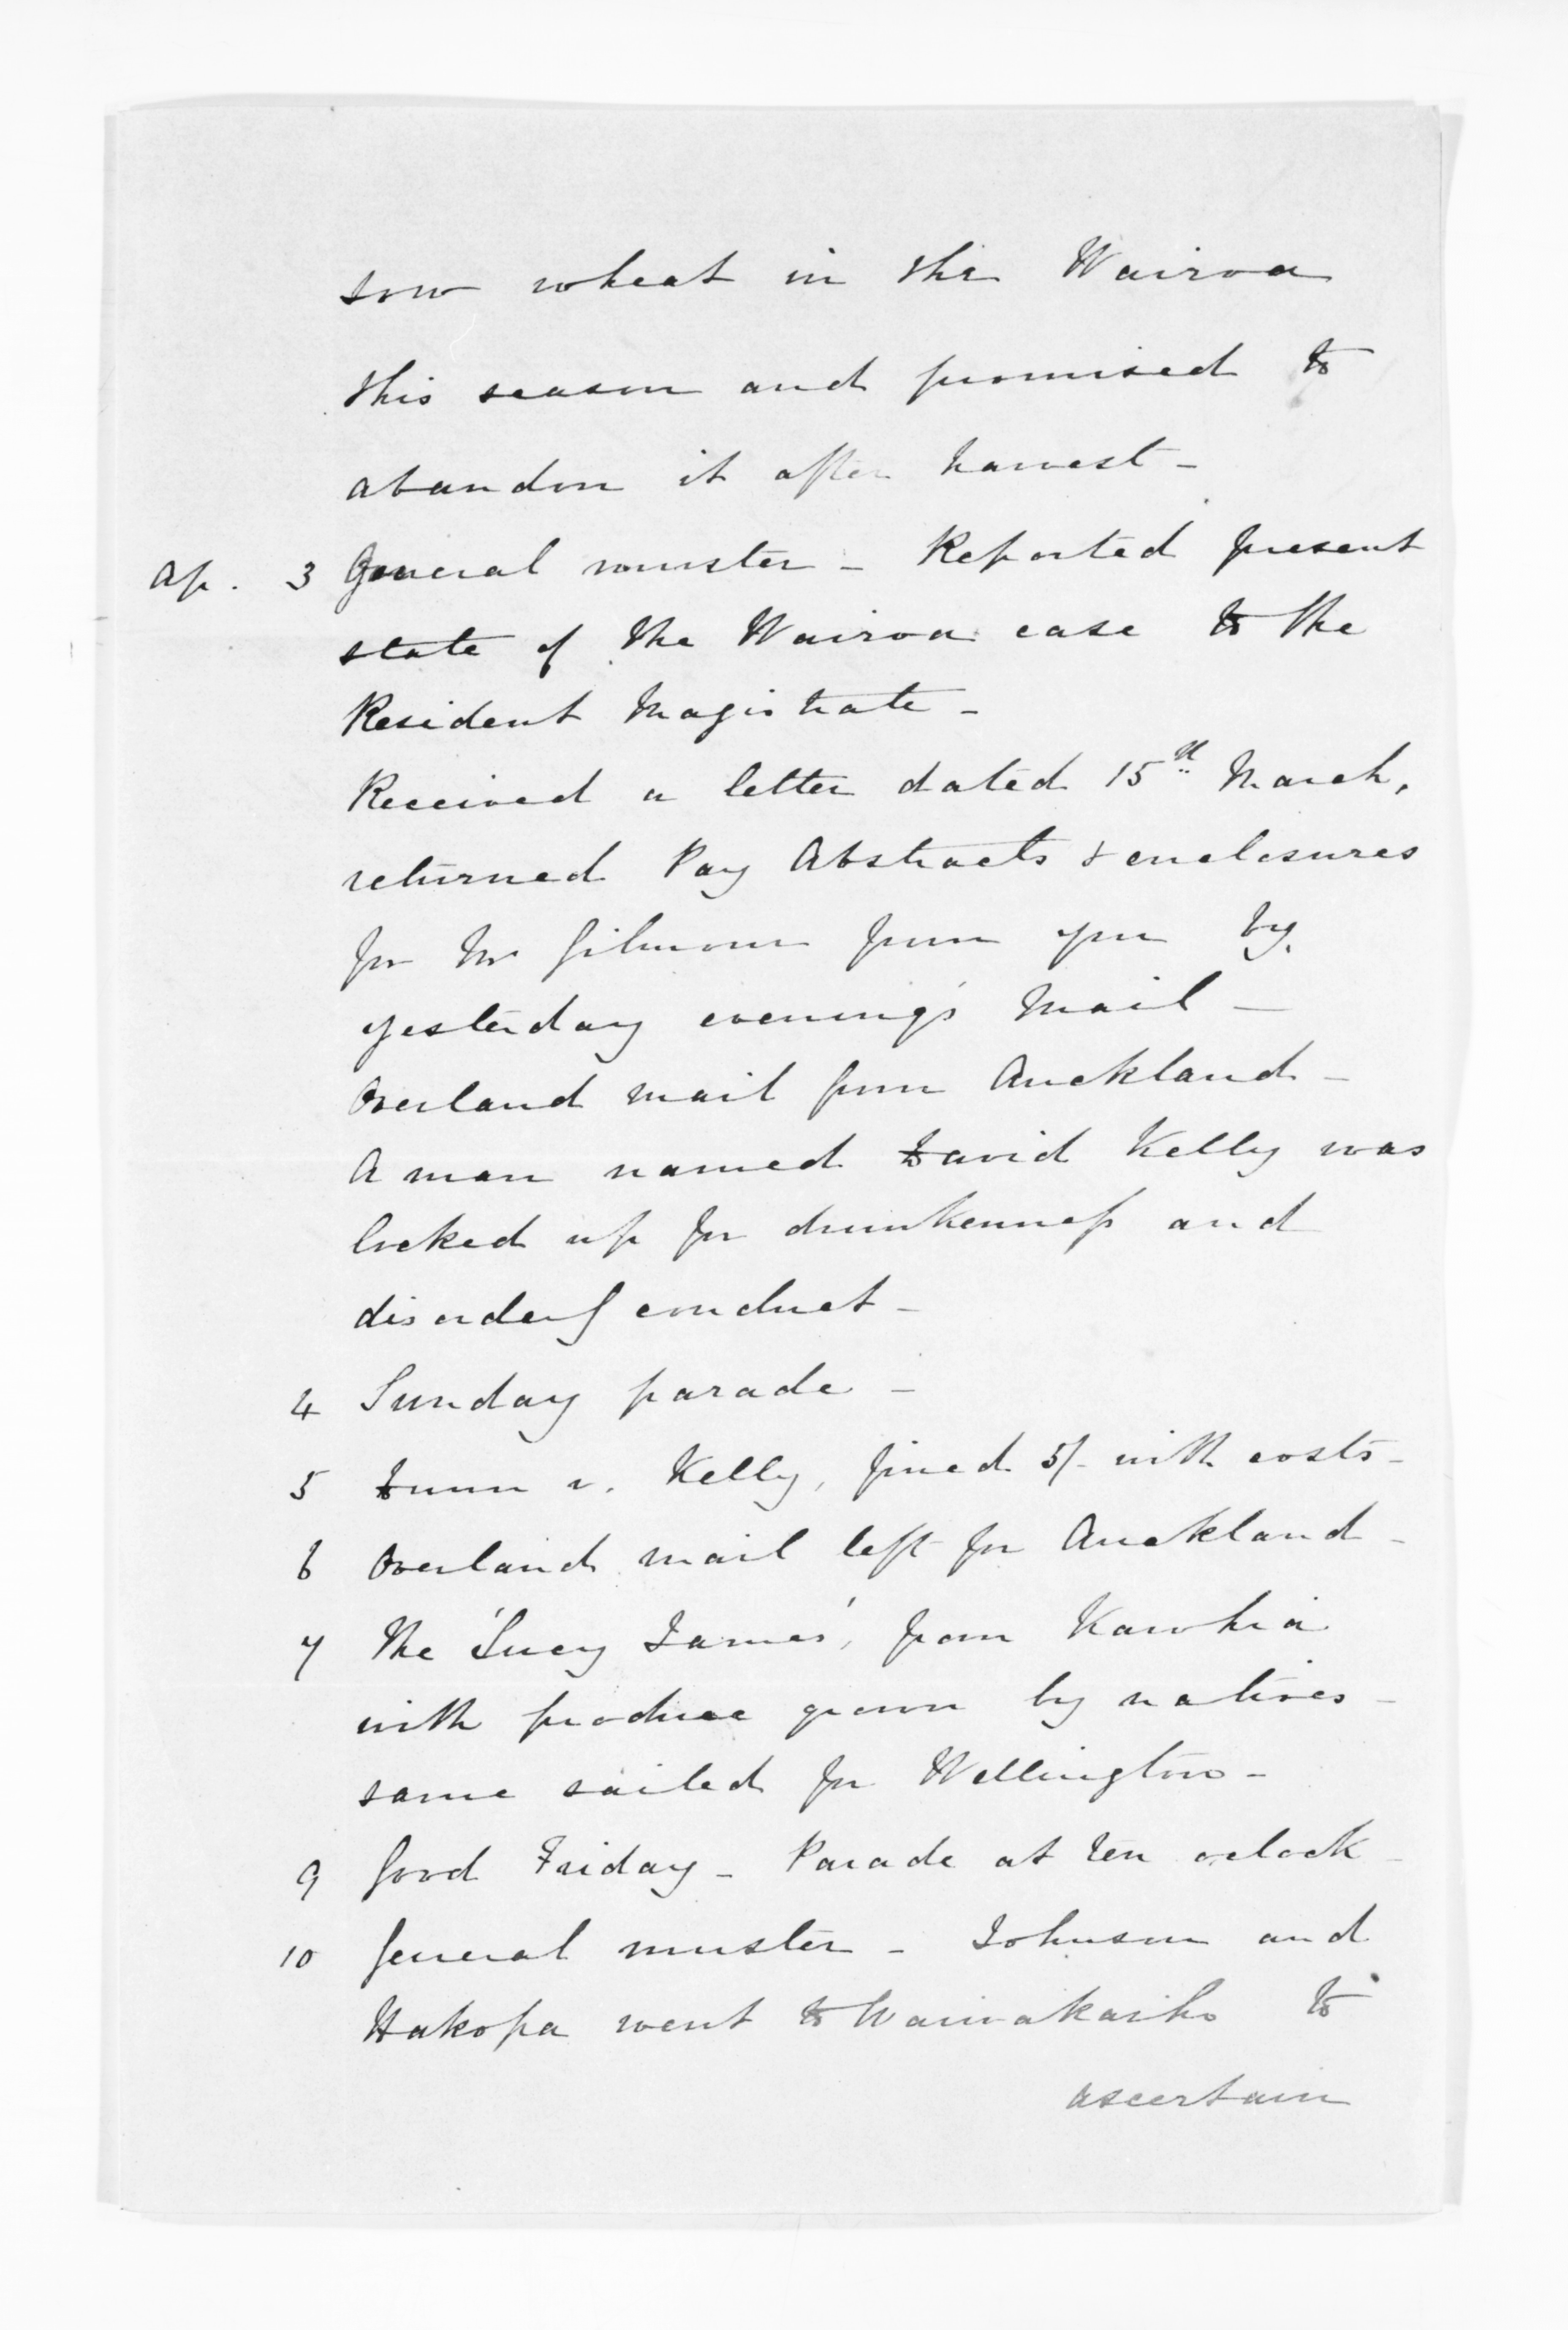 sow wheat in the Wairoa
this season and promised to
abandon it after harvest -
Ap. 3 General muster - Reported present
state of the Wairoa case to the
Resident Magistrate -
Received a letter dated 15th March,
returned Pay Abstracts & enclosures
for Mr Gilmour from you by
yesterday evening's mail -
Overland mail from Auckland -
A man named David Kelly was
locked up for drunkenness and
disorderly conduct -
4 Sunday parade -
5 Dunn v. Kelly, fined 5/- with costs -
6 Overland mail left for Auckland -
7 The 'Lucy James', from Kawhia
with produce grown by natives -
same sailed for Wellington -
9 Good Friday - Parade at ten oclock -
10 General muster - Johnson and
Hakopa went to Waiwakaiho to
ascertain